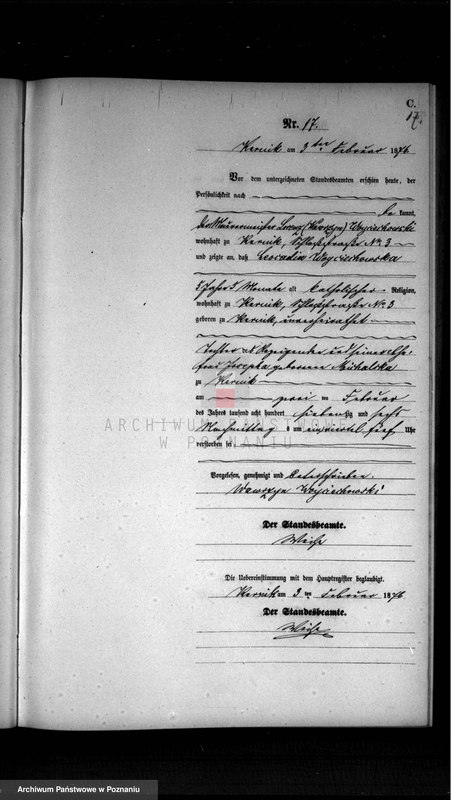 C.
17.
Nr. 17.
Kurnik am 3ten Februar 1876
Vor dem unterzeichneten Standesbeamten erschien heute, der
Persönlichkeit nach
be kannt,
der Maurermeister Lorenz (Wawrzyn) Woyciechowski
wohnhaft zu Kurnik, Schloßstraße No 3
und zeigte an, daß Leocadia Woyciechowska
5 Jahre 3 Monate alt katholischer Religion,
wohnhaft zu Kurnik, Schloßstraße No 3
geboren zu Kurnik, unverheirathet
Tochter des Anzeigenden und seiner Ehe-
frau Josepha geborenen Michalska
zu Kurnik
am zwei ten Februar
des Jahres tausend acht hundert siebenzig und sechs
Nachmittag s um Uhr
verstorben sei
ARCHIWUM PAŃSTWOWE
W POZNANIU
Vorgelesen, genehmigt und unterschrieben.
Wawrzyn Woyciechowski
Der Standesbeamte.
Weise
Die Uebereinstimmung mit dem Hauptregister beglaubigt.
Kurnik am 3 ten Februar 1876
Der Standesbeamte.
Weise
Archiwum Państwowe w Poznaniu